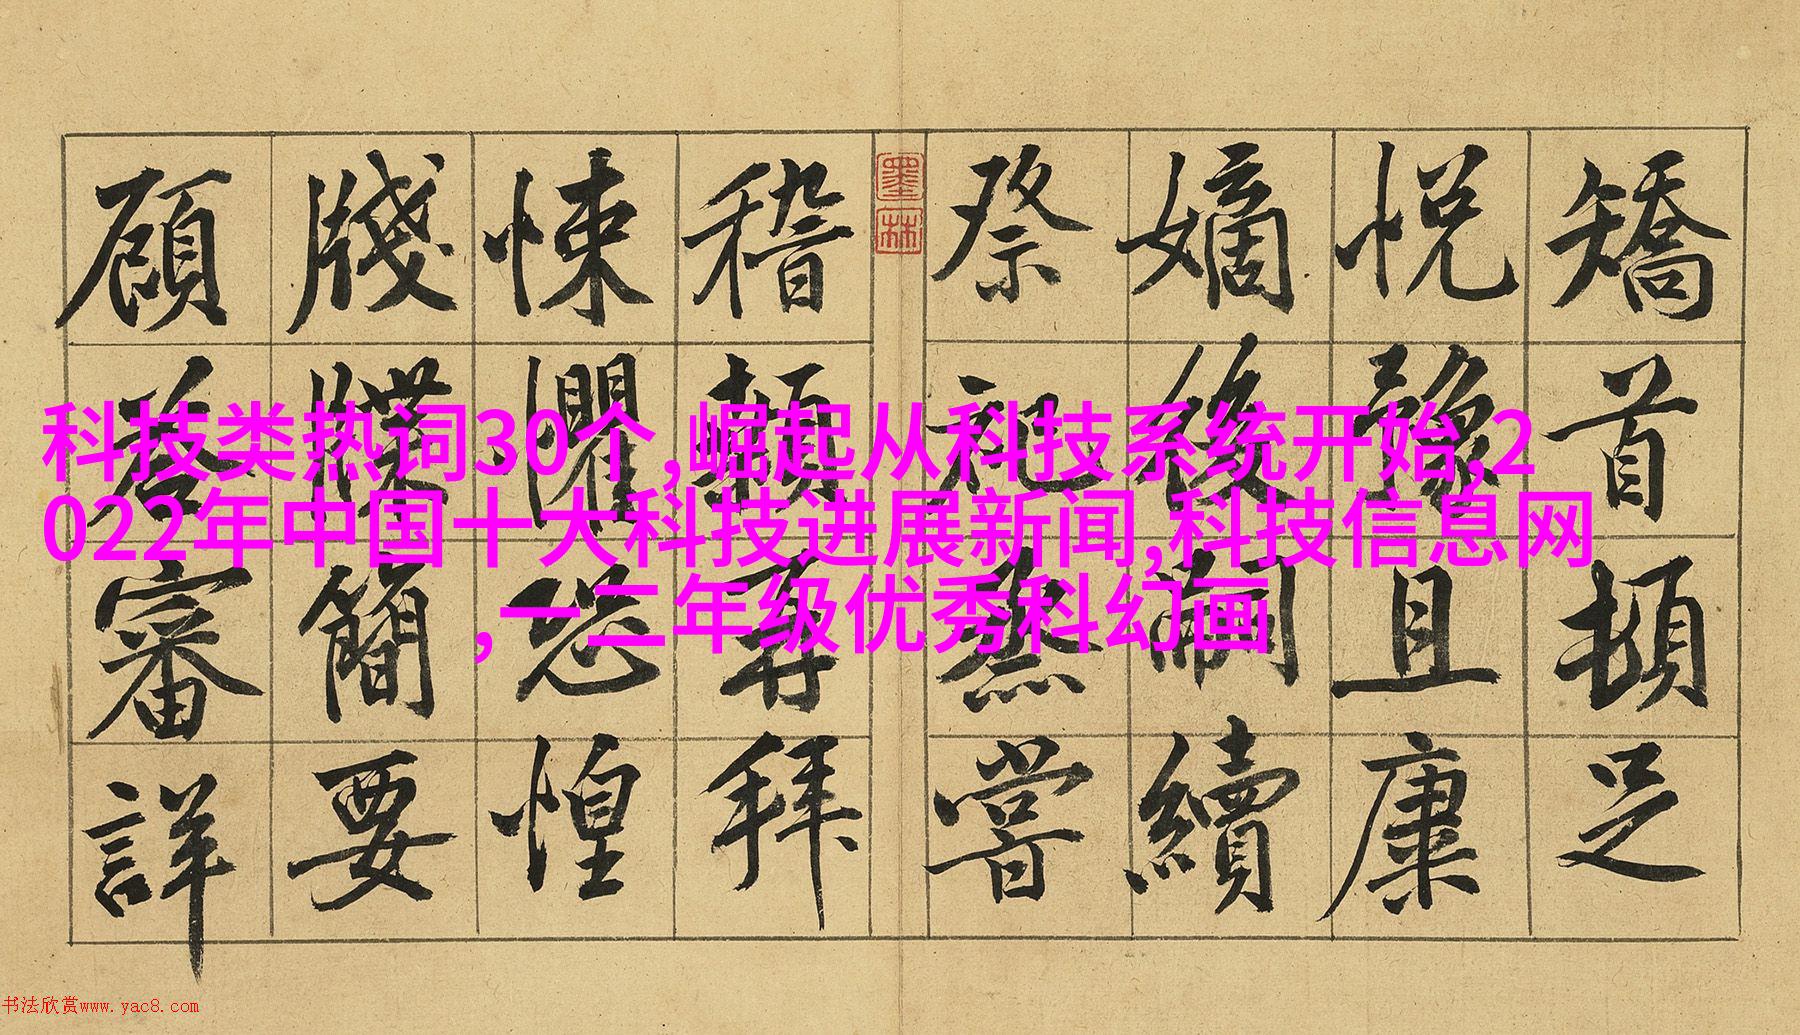 矯首頓足
悅豫且康
嫡後嗣續
祭祀蒸嘗
墨林
稽顙再拜
悚懼恐惶
牋牒簡要
顧答審詳
科技类热词30个,崛起从科技系统开始,2
022年中国十大科技进展新闻,科技信息网
,一二年级优秀科幻画
书法欣赏www.yac8.com